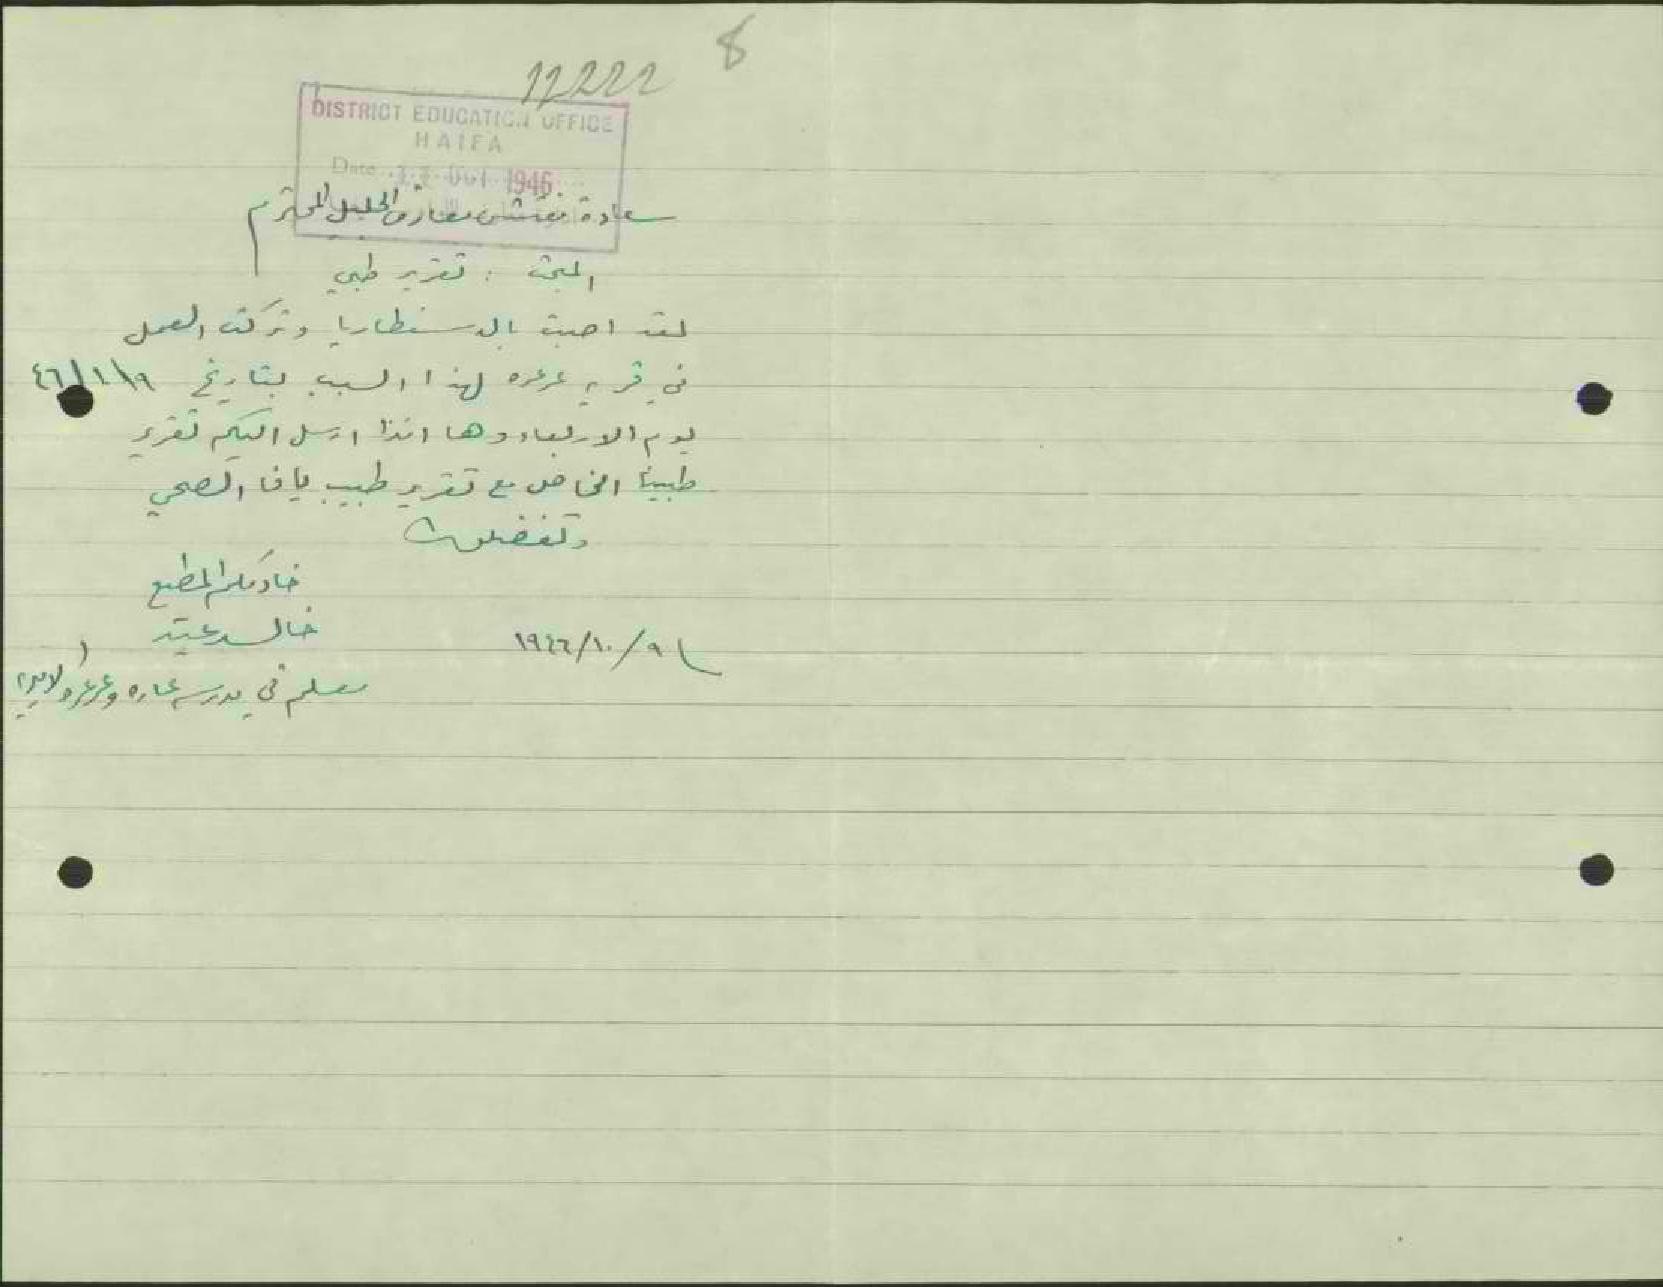 8
12222
DISTRICT EDUCATION OFFICE
HAIFA
Date 1946
سعادة مفتش معارف الجليل المحترم
المبحث : تقرير طبي
لقد اصبت بالدسنطاريا وتركت العمل
في قرية عرعره لهذا السبب بتاريخ
يوم الاربعاء وها انذا ارسل اليكم تقرير
طبيبنا الخاص مع تقرير طبيب يافا الصحي
وتفضلوا
خادمكم المطيع
خالد
٩/١٠/١٩٤٦
معلم في مدرسة عاره وعرعره الاميرية